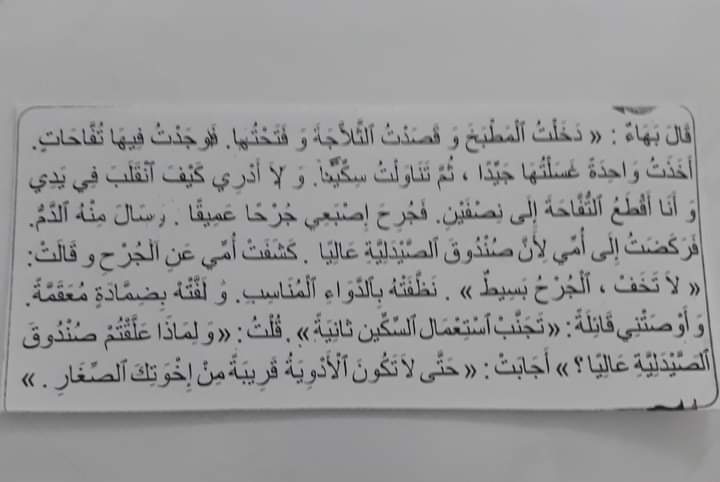 قَالَ بَهَاءٌ : » دَخَلْتُ ٱلْمَطْبَخَ وَ قَصَدْتُ ٱلثَّلاَّجَةَ وَ فَتَحْتُهَا. فَوَجَدْتُ فِيهَا تُفَّاحَاتٍ.
أَخَذْتُ وَاحِدَةً غَسَلْتُهَا جَيِّدًا ، ثُمَّ تَنَاوَلْتُ سِكِّينًا. وَ لاَ أَدْرِي كَيْفَ ٱنْقَلَبَ فِي يَدِي
وَ أَنَا أَقْطَعُ ٱلتُّفَّاحَةَ إِلَى نِصْفَيْنِ. فَجُرِحَ إِصْبَعِي جُرْحًا عَمِيقًا . وسَالَ مِنْهُ ٱلدَّمُ.
فَرَكَضْتُ إِلَى أُمِّي لِأَنَّ صُنْدُوقَ ٱلصَّيْدَلِيَّةِ عَالِيًا . كَشَفَتْ أُمِّي عَنِ ٱلْجُرْحِ وَ قَالَتْ:
» لاَ تَخَفْ ، ٱلْجُرْحُ بَسِيطٌ « . نَظَّفَتْهُ بِٱلدَّوَاءِ ٱلْمُنَاسِبِ. وَ لَفَّتْهُ بِضِمَادَةٍ مُعَقَّمَةٍ.
وَ أَوْصَتْنِي قَائِلَةً : » تَجَنَّبْ ٱسْتِعْمَالَ ٱلسِّكِّينِ ثَانِيَةً « . قُلْتُ : » وَ لِمَاذَا عَلَّقْتُمْ صُنْدُوقَ
ٱلصَّيْدَلِيَّةِ عَالِيًا؟ « أَجَابَتْ : » حَتَّى لاَ تَكُونَ ٱلْأَدْوِيَةُ قَرِيبَةً مِنْ إِخْوَتِكَ ٱلصِّغَارِ . «